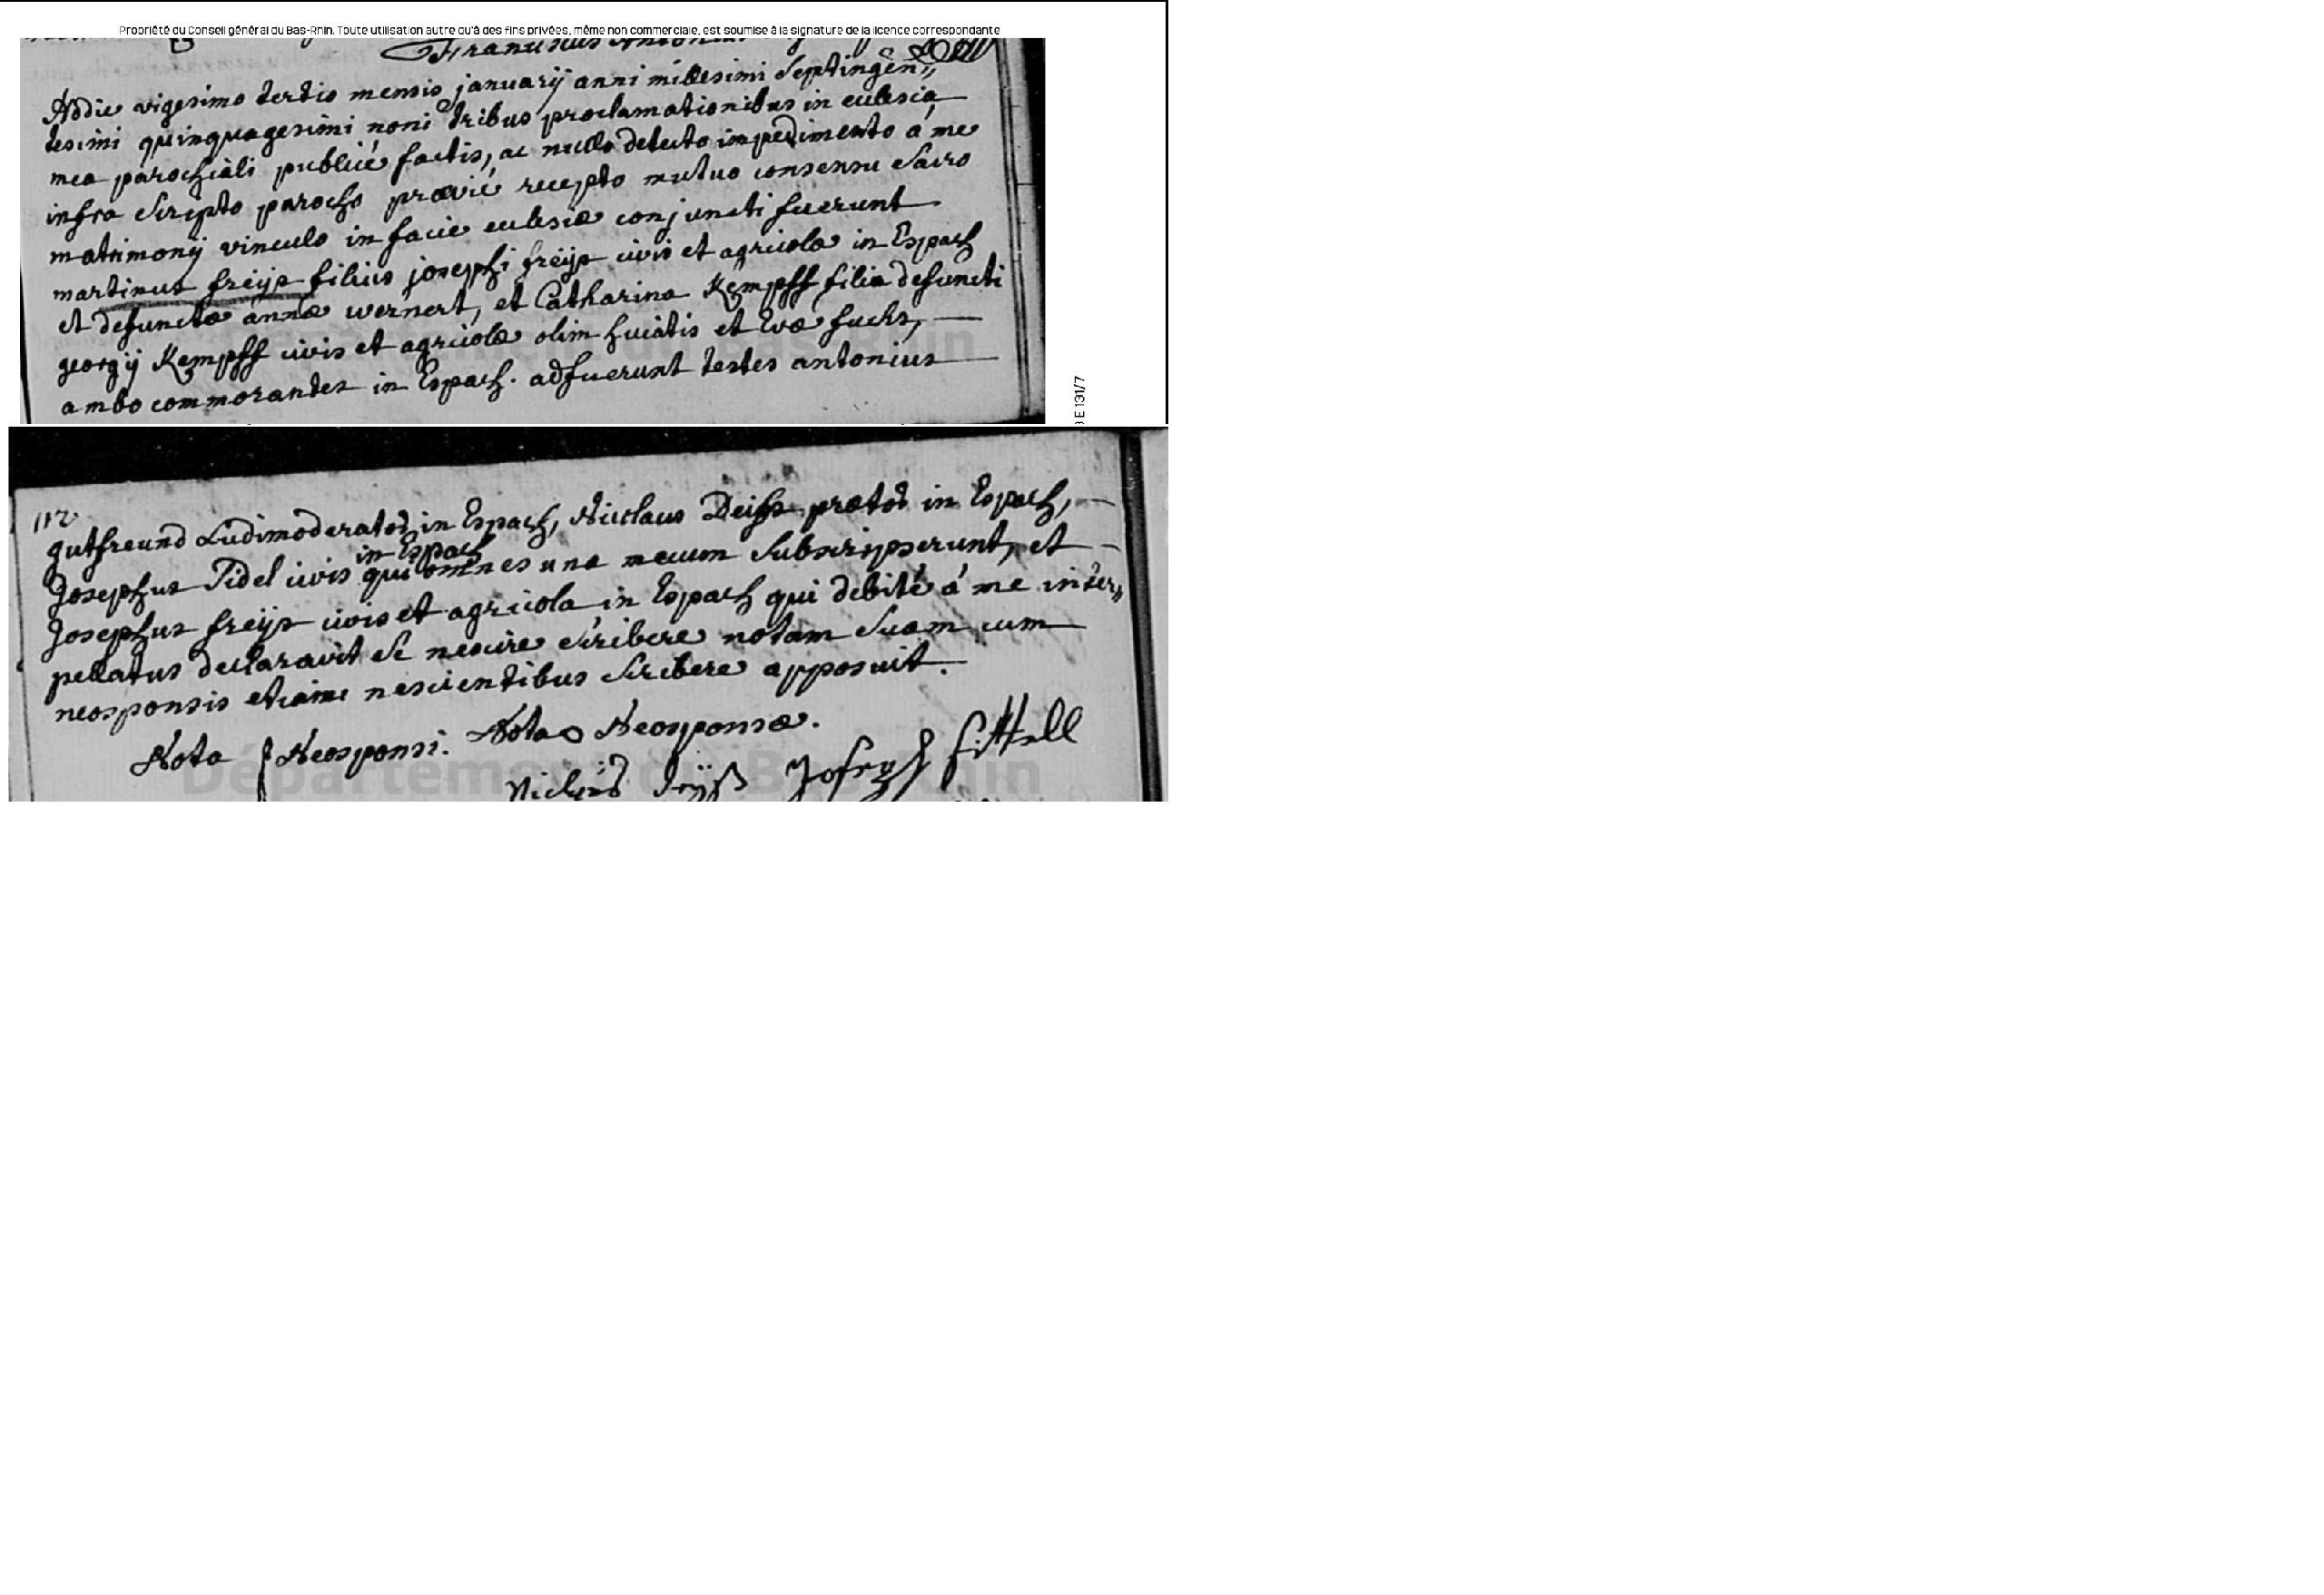 Propriété du Conseil général du Bas-Rhin. Toute utilisation autre qu'à des fins privées, même non commerciale, est soumise à la signature de la licence correspondante
Franciscus
Hodie vigesimo tertio mensis januarij anni millesimi Septingen,,
tesimi quinquagesimi noni tribus proclamationibus in ecclesia
mea parochiali publicé factis, ac nullo detecto impedimento á me
infra Scripto parocho praevié recepto mutuo consensu Sacro
matrimonij vinculo in facie ecclesiae conjuncti fuerunt
martinus freijs filius josephi freijs civis et agricola in Espach
et defunctae annae wernert, et Catharina Kempff filia defuncti
georgij Kempff civis et agricola olim huiatis et Evae fuchs,
ambo commorantes in Espach. adfuerunt testes antonius
3 E 131/7
112
gutfreund Ludimoderator in Espach, Nicolaus Deiss praetor in Espach,
in Espach
Josephus Fidel civis qui omnes una mecum Subscripserunt, et
Josephus freijs civis et agricola in Espach qui debité á me inter,,
pellatus declaravit Se nescire Scribere notam Suam cum
neosponsis etiam nescientibus Scribere apposuit.
Nota Neosponsi. Nota o Neosponsae.
Joseph fittell
Département du Bas-Rhin